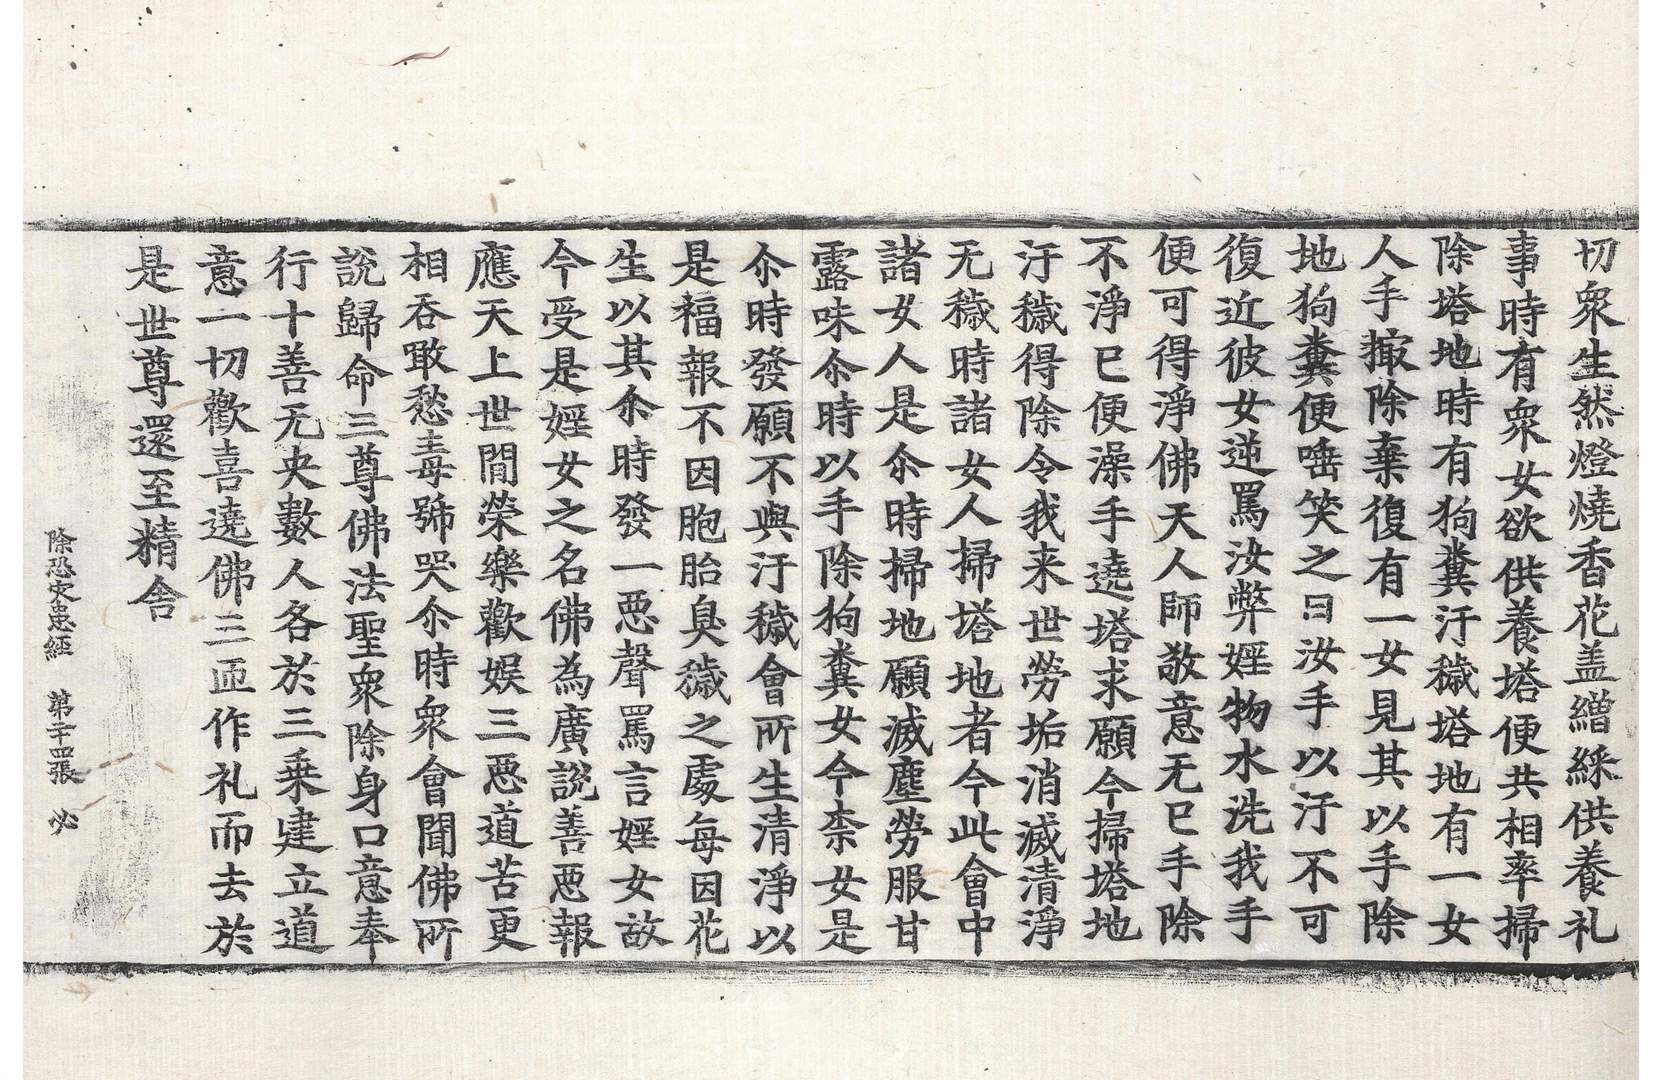 切衆生然燈燒香花盖繒綵供養礼
事時有衆女欲供養塔便共相率掃
除塔地時有狗糞汙穢塔地有一女
人手撮除棄復有一女見其以手除
地狗糞便唾笑之曰汝手以汙不可
復近彼女逆罵汝弊婬物水洗我手
便可得淨佛天人師敬意无已手除
不淨已便澡手遶塔求願今掃塔地
汙穢得除令我来世勞垢消滅清淨
无穢時諸女人掃塔地者今此會中
諸女人是尒時掃地願滅塵勞服甘
露味尒時以手除狗糞女今柰女是
尒時發願不與汙穢會所生清淨以
是福報不因胞胎臭穢之處每因花
生以其尒時發一惡聲罵言婬女故
今受是婬女之名佛為廣說善惡報
應天上世間榮樂歡娛三惡道苦更
相吞噉愁毒號哭尒時衆會聞佛所
說歸命三尊佛法聖衆除身口意奉
行十善无央數人各於三乗建立道
意一切歡喜遶佛三匝作礼而去於
是世尊還至精舍
除恐灾患經　第二十四張　必